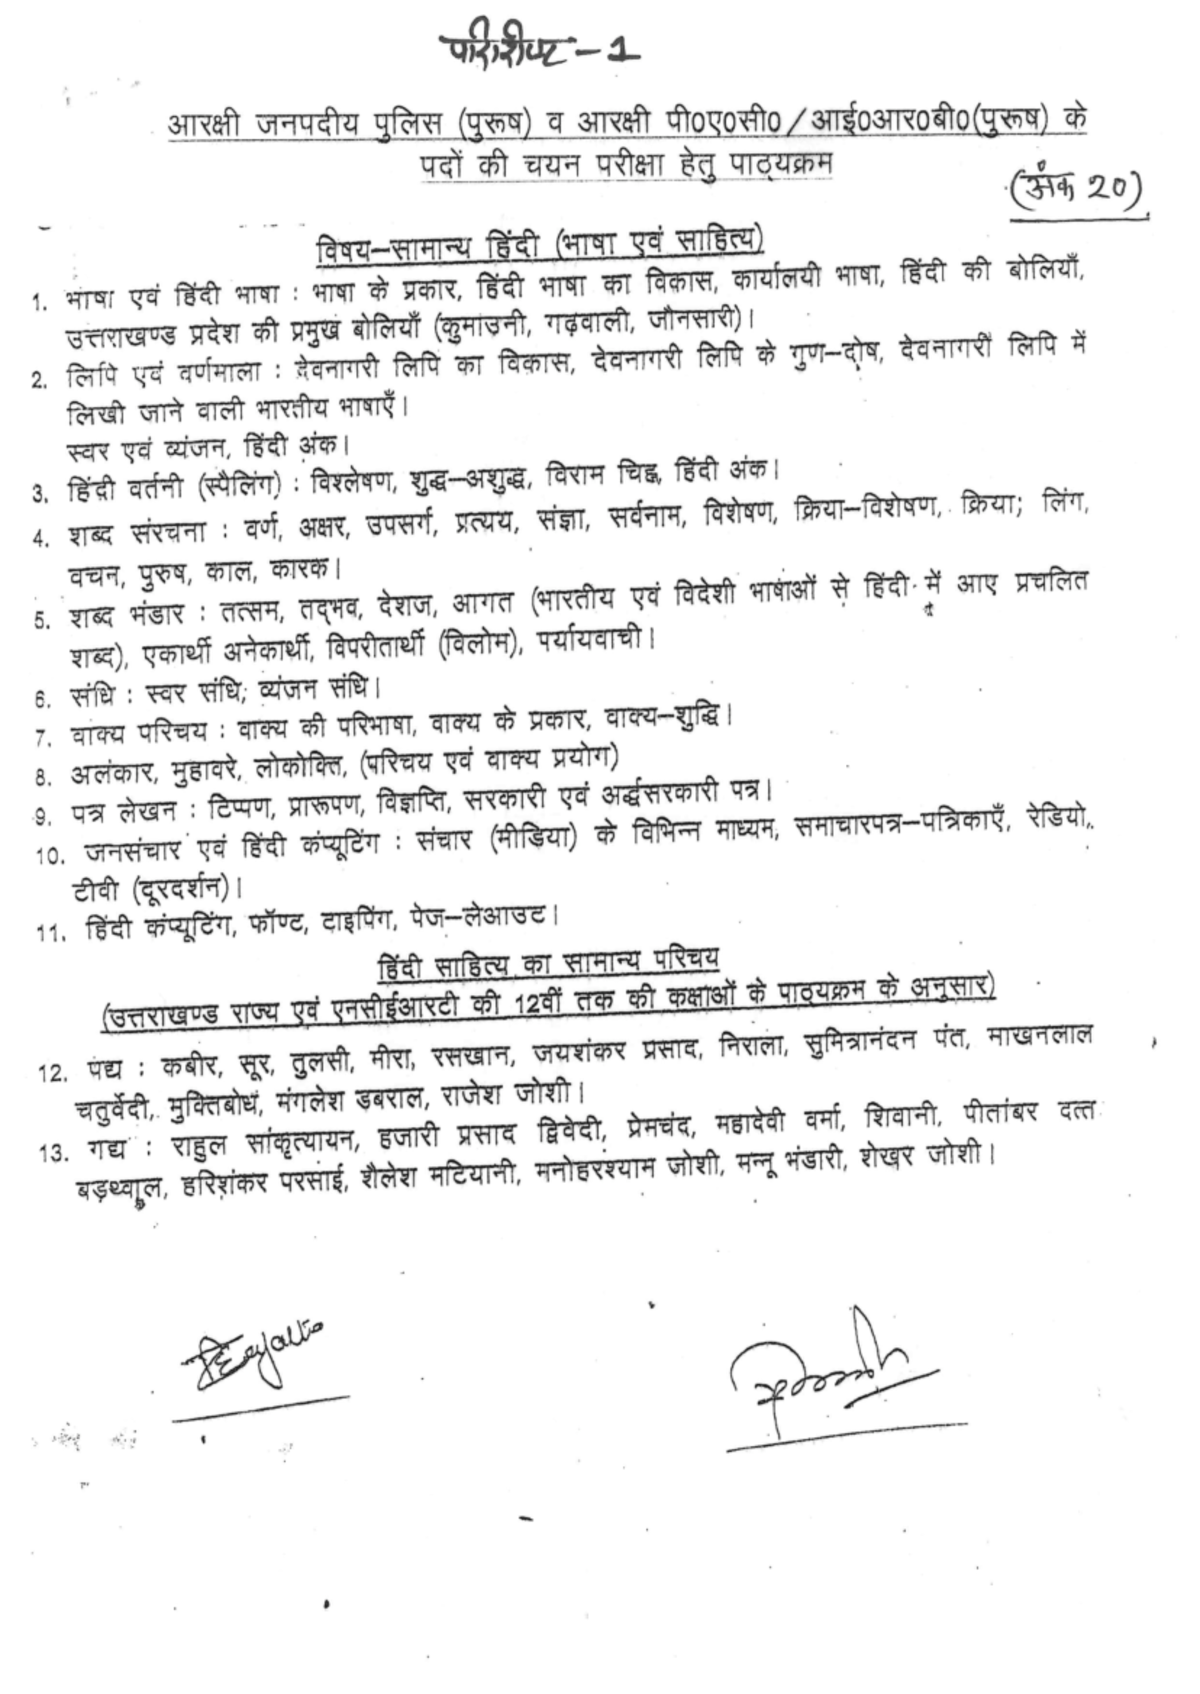 परिशिष्ट - 1
आरक्षी जनपदीय पुलिस (पुरूष) व आरक्षी पी0ए0सी0/आई0आर0बी0(पुरूष) के
पदों की चयन परीक्षा हेतु पाठ्यक्रम
(अंक 20)
विषय–सामान्य हिंदी (भाषा एवं साहित्य)
1. भाषा एवं हिंदी भाषा : भाषा के प्रकार, हिंदी भाषा का विकास, कार्यालयी भाषा, हिंदी की बोलियाँ,
उत्तराखण्ड प्रदेश की प्रमुख बोलियाँ (कुमाउनी, गढ़वाली, जौनसारी)।
2. लिपि एवं वर्णमाला : देवनागरी लिपि का विकास, देवनागरी लिपि के गुण–दोष, देवनागरी लिपि में
लिखी जाने वाली भारतीय भाषाएँ।
स्वर एवं व्यंजन, हिंदी अंक।
3. हिंदी वर्तनी (स्पैलिंग) : विश्लेषण, शुद्ध–अशुद्ध, विराम चिह्न, हिंदी अंक।
4. शब्द संरचना : वर्ण, अक्षर, उपसर्ग, प्रत्यय, संज्ञा, सर्वनाम, विशेषण, क्रिया–विशेषण, क्रिया; लिंग,
वचन, पुरुष, काल, कारक।
5. शब्द भंडार : तत्सम, तद्भव, देशज, आगत (भारतीय एवं विदेशी भाषाओं से हिंदी में आए प्रचलित
शब्द), एकार्थी अनेकार्थी, विपरीतार्थी (विलोम), पर्यायवाची।
6. संधि : स्वर संधि; व्यंजन संधि।
7. वाक्य परिचय : वाक्य की परिभाषा, वाक्य के प्रकार, वाक्य–शुद्धि।
8. अलंकार, मुहावरे, लोकोक्ति, (परिचय एवं वाक्य प्रयोग)
9. पत्र लेखन : टिप्पण, प्रारूपण, विज्ञप्ति, सरकारी एवं अर्द्धसरकारी पत्र।
10. जनसंचार एवं हिंदी कंप्यूटिंग : संचार (मीडिया) के विभिन्न माध्यम, समाचारपत्र–पत्रिकाएँ, रेडियो,
टीवी (दूरदर्शन)।
11. हिंदी कंप्यूटिंग, फॉण्ट, टाइपिंग, पेज–लेआउट।
हिंदी साहित्य का सामान्य परिचय
(उत्तराखण्ड राज्य एवं एनसीईआरटी की 12वीं तक की कक्षाओं के पाठ्यक्रम के अनुसार)
12. पद्य : कबीर, सूर, तुलसी, मीरा, रसखान, जयशंकर प्रसाद, निराला, सुमित्रानंदन पंत, माखनलाल
चतुर्वेदी, मुक्तिबोध, मंगलेश डबराल, राजेश जोशी।
13. गद्य : राहुल सांकृत्यायन, हजारी प्रसाद द्विवेदी, प्रेमचंद, महादेवी वर्मा, शिवानी, पीतांबर दत्त
बड़थ्वाल, हरिशंकर परसाई, शैलेश मटियानी, मनोहरश्याम जोशी, मन्नू भंडारी, शेखर जोशी।